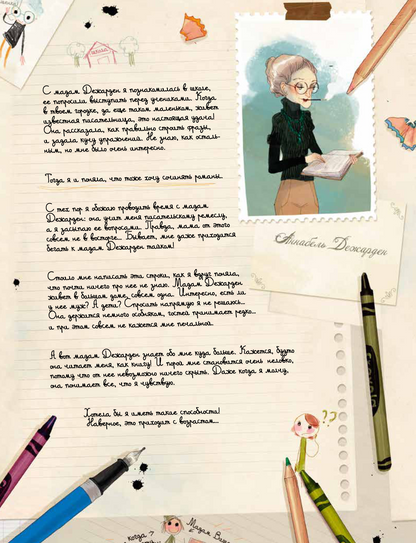 школа
С мадам Дежарден я познакомилась в школе,
ее попросили выступить перед учениками. Когда
в твоем городке, да еще таком маленьком, живет
известная писательница, это настоящая удача!
Она рассказала, как правильно строить фразы,
и задала кучу упражнений. Не знаю, как осталь-
ным, но мне было очень интересно.
Тогда я и поняла, что тоже хочу сочинять романы.
С тех пор я обожаю проводить время с мадам
Дежарден: она учит меня писательскому ремеслу,
а я засыпаю ее вопросами. Правда, мама от этого
совсем не в восторге... Бывает, мне даже приходится
бегать к мадам Дежарден тайком!
Аннабель Дежарден
Стоило мне написать эти строки, как я вдруг поняла,
что почти ничего про нее не знаю. Мадам Дежарден
живет в большом доме, совсем одна. Интересно, есть ли
у нее муж? А дети? Спросить напрямую я не решаюсь...
Она держится немного особняком, гостей принимает редко...
и при этом совсем не кажется мне печальной.
А вот мадам Дежарден знает обо мне куда больше. Кажется, будто
она читает меня, как книгу! И порой мне становится очень неловко,
потому что от нее невозможно ничего скрыть. Даже когда я молчу,
она понимает все, что я чувствую.
Хотела бы я иметь такие способности!
Наверное, это приходит с возрастом...
??
когда?
Мадам